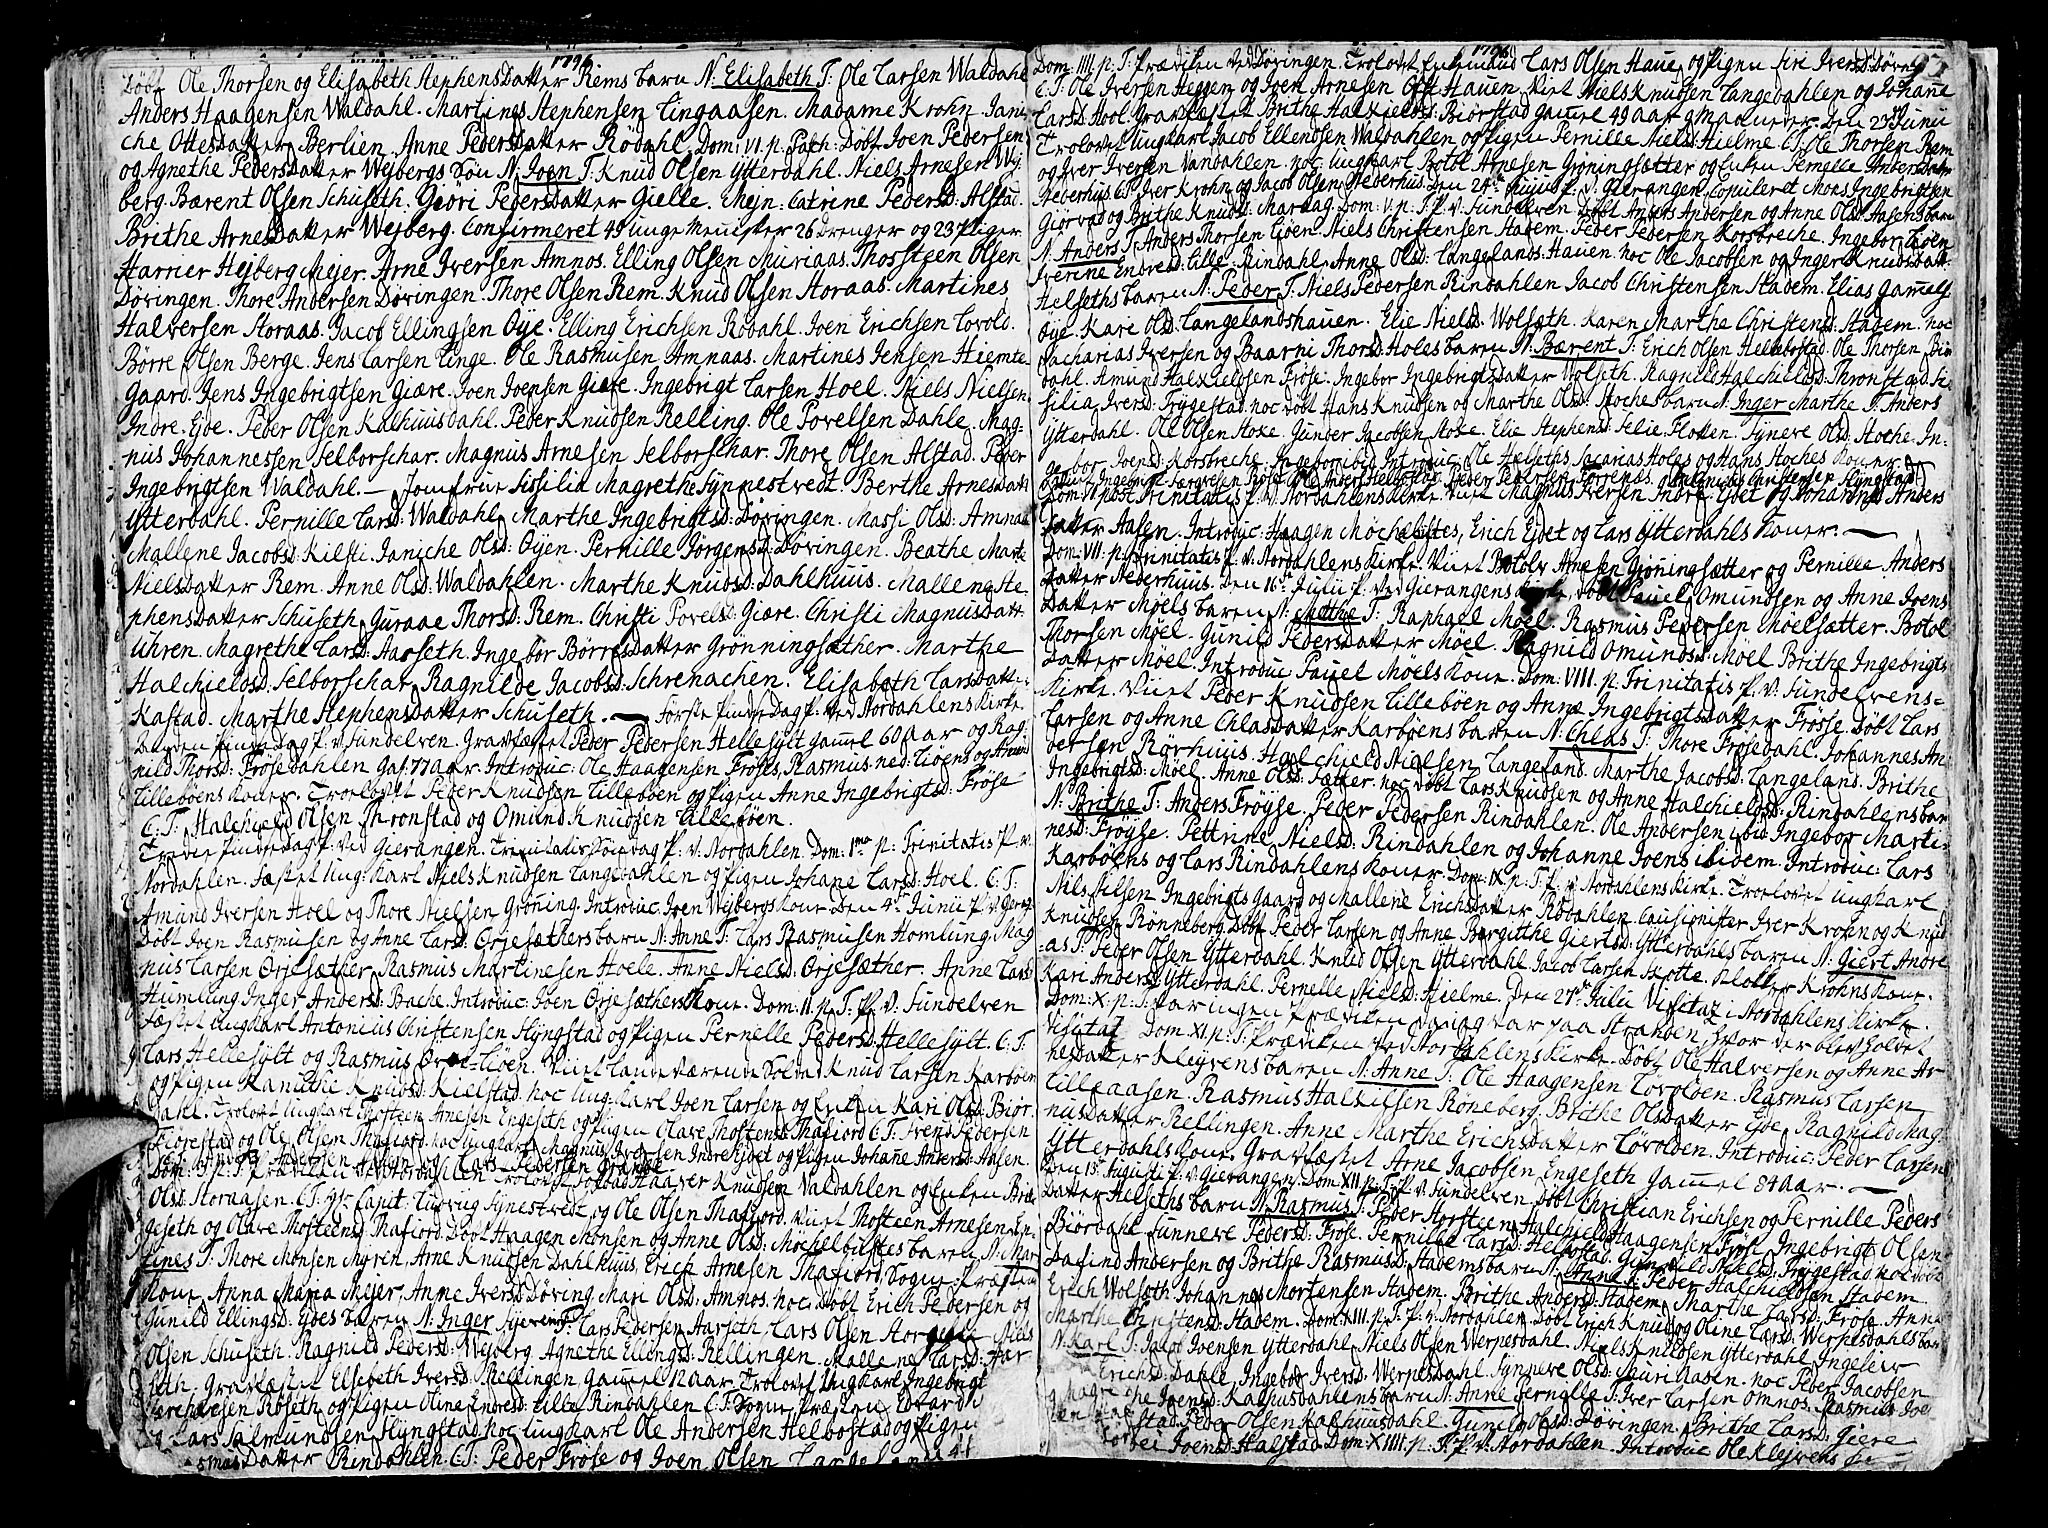 1796
Døbt Ole Thorsen og Elisabeth Stephensdatter Rems barn N. Elisabeth T: Ole Larsen Waldahl
Anders Haagensen Waldahl. Martines Stephensen Lingaasen. Madame Krohn. Jani
che Ottesdatter Berlien. Anne Pedersdatter Rødahl. Dom: VI. p. Pasch: Døbt Joen Pedersen
og Agnethe Pedersdatter Wejbergs Søn N. Joen T: Knud Olsen Ytterdahl. Niels Arnesen Wej
berg. Bærent Olsen Schuseth. Giøri Pedersdatter Gielle. Mejn: Catrine Pedersd: Alstad.
Brithe Arnesdatter Wejberg. Confirmeret 49 unge Mennisker 26 Drenger og 23 Piger
Harrier Hejberg Mejer. Arne Iversen Amnos. Elling Olsen Muriaas. Thosteen Olsen
Døvingen. Thore Andersen Døvingen. Thore Olsen Rem. Knud Olsen Storaas. Martines
Halversen Storaas. Jacob Ellingsen Øye. Elling Erichsen Rødahl. Joen Erichsen Lovold.
Børre Olsen Berge. Jens Larsen Linge. Ole Rasmusen Amnaas. Martines Jensen Hiemte
Gaard. Jens Ingebrigtsen Giære. Joen Joensen Giære. Ingebrigt Larsen Hoel. Niels Nielsen
Indre. Ejde. Peder Olsen Kalhuusdahl. Peder Knudsen Relling. Ole Povelsen Dahle. Mag-
nus Johannessen Selborschar. Magnus Arnesen Selborschar. Thore Olsen Alstad. Peder
Ingebrigtsen Waldahl. — Jomfrue Sissilia Magrethe Synnestvedt. Berthe Arnesdatt
Ytterdahl. Pernille Larsd: Waldahl. Marthe Ingebrigtsd: Døvingen. Massi Olsd: Amnaas
Mallene Jacobsd: Kilsti. Janiche Olsd: Øyen. Pernille Jørgensd: Døvingen. Beathe Marte
Nielsdatter Rem. Anne Olsd: Waldahlen. Marthe Knudsd: Dahlhuus. Mallene Ste
phensdatter Schuseth. Guraae Thorsd: Rem. Christi Povelsd: Giære. Christi Magnusdatt
Uhren. Magrethe Larsd: Aarseth. Ingebor Børresdatter Grønningsæther. Marthe
Halchields d: Selborschar. Ragnilde Jacobsd: Schrenachen. Elisabeth Larsdatt:
Kastad. Marthe Stephensdatter Schuseth. — Første Pindsedag P. ved Nordahlens Kirke
Anden Pindsedag P. v. Sundelven. Gravfæstet Peder Pedersen Hellesylt gamel 60 Aar og Rag
nild Thorsd: Frøsedahlen Gal: 77 Aar. Introduc: Ole Haagensen Frøses, Rasmus ned: Liøens og
Lillebøens Koner. Troelovet Peder Knudsen Lillebøen og Pigen Anne Ingebrigtsd: Frøse
C: T: Halchield Olsen Thronstad og Omund Knudsen Lillebøen.
Tredie Pindsedag P. ved Gierangen. Trinitatis Søndag P. v. Nordahlen. Dom: 1ma p: Trinitatis P. v.
Nordahlen. Fæstet Ung: Karl Niels Knudsen Langedahlen og Pigen Johane Larsd: Hoel. C: T:
Amund Iversen Hoel og Thore Nielsen Grøning. Introduc: Joen Wejbergs Kone Den 4de Junii P. v. Gierag:
Døbt Joen Rasmusen og Anne Larsd: Ørjesæthers barn N: Anne T: Lars Rasmusen Homlung. Mag
nus Larsen Ørjesæther. Rasmus Martinesen Hoele. Anne Nielsd: Ørjesæther. Anne Larsd
Humlung. Inger Andersd: Bache. Introduc: Joen Ørjesæthers Kone. Dom: II. p. T: P. v. Sundelven
Fæstet Ungkarl Antonius Christensen Slyngstad og Pigen Pernelle Pedersd: Hellesylt. C: T:
Lars Hellesylt og Rasmus Liøen. Viiet Landeværende Soldat Knud Larsen Karbøen
og Pigen Kanutte Knudsd: Kielstad. noc Ung: Karl Joen Larsen og Enken Kari Olsd: Biør
dahl. Trolovet Ungkarl Thosteen Arnesen Engeseth og Pigen Olave Thostensd: Thafiord C: T: Svend Pedersen
Fiørestad og Ole Olsen Thafiord. noc Ungkarl Magnus Iversen Indre Ejdet og Pigen Johane Andersd: Aasen.
Trolovet Haaver Knudsen Valdahlen og Enken Bræ
Olsd: Storaasen. C: T: Hr: Capit. Ludvig Synestvedt og Ole Olsen Thafiord. Viiet Thosteen Arnesen En
geseth og Olave Thosteensd: Thafiord. Døbt Haagen Monsen og Anne Olsd: Mochelbustes barn N: Mar
tines T: Thore Monsen Myren. Arne Knudsen Dahlhuus. Erich Arnesen Thafiord. Sogne-Præstens
Kone, Anna Maria Mejer, Anne Iversd: Døving. Mari Olsd: Amnos. noc Døbt Erich Pedersen og
Gunild Ellingsd: Ejdes barn N. Inger T: Lars Pedersen Aarseth. Lars Olsen Niels
Olsen Schuseth. Ragnild Pedersd: Wejberg. Agnethe Ellingsd: Rellingen. Mallene Larsd: Aar
seth. Gravfæstet Elsebeth Iversd: Rellingen. gamel 12 Aar. Trolovet Ungkarl Ingebrigt
Røseth og Pigen Oline Endresd: Lille Rindahlen C. T. Sogne-Præsten Edvardh
og Lars Salmundsen Slyngstad. noc Ungkarl Ole Andersen Helbostad og Pigen
Rasmusdatter Rindahlen C: T: Peder Frøse og Joen Olsen
1796
Dom: IIII. p: T: Prædiken ved Døvingen. Trolovet Enkemand Lars Olsen Haue og Pigen Siri Iversd: Døving
C: T: Ole Iversen Heggem og Joen Arnesen Øfste Hauen. Viet Niels Knudsen Langedahlen og Johane
Larsd: Hool. Gravfæstet Brithe Halkields d: Biørstad gamle 49 Aar 9 Maaneder. Den 23de Junii
Trolovet Ungkarl Jacob Ellendsen Waldahlen og Pigen Pernille Nielsd: Hielme C: T: Ole Thorsen Rem
og Iver Iversen Vandahlen. noc Ungkarl Botol Arnesen Grøningsætter og Enken Pernelle Andersdatt
Nederhus C: T: Iver Krohn og Jacob Olsen Nederhus. Den v. Gierangen Copuleret Mons Ingebrigtsen
Giørvad og Brithe Knudsd: Maraag. Dom: V. p: T: P. v. Sundelven Døbt Anders Andersen og Anne Olsd: Aasens barn
N. Anders T: Anders Thorsen Liøen. Niels Christensen Stadem. Peder Pedersen Korsbreche. Ingebor Liøen
Iverine Endresd: Lille-Rindahl. Anne Olsd: Langelands-Hauen. noc Ole Jacobsen og Inger Knudsdatt:
Helseths barn N: Peder T: Niels Pedersen Rindahlen. Jacob Christensen Stadem. Elias Gamels
Øye. Kari Olsd: Langelandshauen. Elie Nielsd: Wolseth. Karen Marthe Christensd: Stadem. noc
Zacharias Iversen og Baarni Thorsd: Holes barn N. Bærent T: Erich Olsen Hellebostad. Ole Thorsen Biør
dahl. Amund Halkieldsen Frøse. Ingebor Ingebrigtsdatter Wolseth. Ragnild Halchieldsd: Thronstad. Si
silia Iversd: Frygestad. noc Døbt Hans Knudsen og Marthe Olsd: Stoches barn N. Inger Marthe T: Anders
Ytterdahl. Ole Olsen Stoxe. Gunder Jacobsen Stoxe. Elie Stephensd: Selie. Floten. Synneve Olsd: Stoche. In-
gebor Joensd: Korsbreche. Ingebor ibid Introduc: Ole Helseths, Sacarias Holes og Hans Stoches Koner.
Ole Anders Helbostad. Peder Pedersen Antonius Christensen Slyngstad
Dom: VI post Trinitatis P. v. Nordahlens Kirke. Viet Magnus Iversen Indre Ejdet og Johanne Anders
datter Aasen. Introduc: Haagen Mochelbustes, Erich Ejdet og Lars Ytterdahls Koner. —
Dom: VII. p. Trinitatis P. v. Nordahlens Kirke. Viiet Botolv Arnesen Grøningsætter og Pernille Anders
datter Nederhuus. Den 16de Julii P. ved Gierangens Kirke, Døbt Pauel Omundsen og Anne Joens
datter Møels barn N: Mæthe T: Raphael Møel. Rasmus Pedersen Møelsætter. Botol
Thorsen Møel. Gunild Pedersdatter Møel. Ragnild Omundsd: Møel. Brithe Ingebrigts
datter Møel. Introduc: Pauel Møels Kone. Dom: VIII. p. Trinitatis P. v. Sundelvens=
Kirke. Viiet Peder Knudsen Lillebøen og Anne Ingebrigtsdatter Frøsse. Døbt Lars
Larsen og Anne Chlasdatter Karbøens barn N: Chlas T: Thore Frøsedahl. Johannes An
dersen Rørhuus. Halchield Nielsen Langeland. Marthe Jacobsd: Langelans. Brithe
Ingebrigtsd: Møel. Anne Olsd: Sætter. noc Døbt Lars Knudsen og Anne Halchieldsd: Rindahlens barn
N: Brithe T: Anders Frøyse. Peder Pedersen Rindahlen. Ole Andersen ibid. Ingebor Marti-
nesd: Frøyse. Pettrine Nielsd: Rindahlen og Johanne Joens ibidem. Introduc: Lars
Karbøens og Lars Rindahlens Koner. Dom: IX. p: T: P. v. Nordahlens Kirke. Trolovet Ungkarl
Nils Nilsen Ingebrigts Gaard og Mallene Erichsdatter Rødahlen. Causionister Iver Krohn og Knud
Knudsen Rønneberg. Døbt Peder Larsen og Anne Bergithe Giertsd: Ytterdahls barn N: Giert Andre
as T: Peder Olsen Ytterdahl. Knud Olsen Ytterdahl. Jacob Larsen Skotte. Klokker Krohns Kone.
Kari Andersd: Ytterdahl. Pernelle Nielsd: Hielme. Den 27de Julii Visitaz i Nordahlens Kirke.
Dom: X. p: T: var ingen Prædiken da jeg var paa Stranden, hvor der blev holdet
Visitaz Dom XI. p: T: Prædiken ved Nordahlens Kirke. Døbt Ole Halversen og Anne Ar
nesdatter Klejvens barn N: Anne T: Ole Haagensen Lovolden. Rasmus Larsen
Lilleaasen. Rasmus Halkilsen Røneberg. Brithe Olsdatter Ejde, Ragnild Mag
nusdatter Rellingen. Anne Marthe Erichsdatter Lovolden. Introduc: Peder Larsen
Ytterdahls Kone. Gravfæstet Arne Jacobsen Engeseth Gammel 84 Aar. —
Den 13. Augusti P. v. Gierangen. Dom XII. p: T: P. v. Sundelven. Døbt Christian Erichsen og Pernille Peders
datter Helseths barn N. Rasmus T: Peder Horsteen, Halchield Haagensen Frøse, Ingebrigt Olsen
Biørdahl. Sunneve Pedersd: Frøse. Pernille Larsd: Helbostad. Gunild Nielsd: Frygestad. noc Døbt
Dafind Andersen og Brithe Rasmusd: Stadems barn N: Anne T: Peder Halchieldsen Stadem
Erich Wolseth. Johannes Mortensen Stadem. Brithe Andersd: Stadem. Marthe Larsd: Frøse. Anne
Marthe Christensd: Stadem. Dom: XIII. p: T: P. v. Nordahlen. Døbt Erich Knud og Oline Larsd: Werpesdahls barn
N: Karl T: Jacob Joensen Ytterdahl. Niels Olsen Werpesdahl. Niels Knudsen Ytterdahl. Ingeleiv
Erichsd: Dahle. Ingebor Iversd: Wernesdahl. Synneve Olsd: Muri Aasen. noc Peder Jacobsen
Joensd: Kalhusdahlens barn N. Anne Pernelle T: Iver Larsen Omnos. Rasmus Joe
Peder Olsen Kalhuusdahl. Gunild Olsd: Døvingen. Brithe Larsd: Giere
Joensd: Halstad. Dom XIIII. p. T: P. v. Nordahlen. Introduc: Ole Klejvens